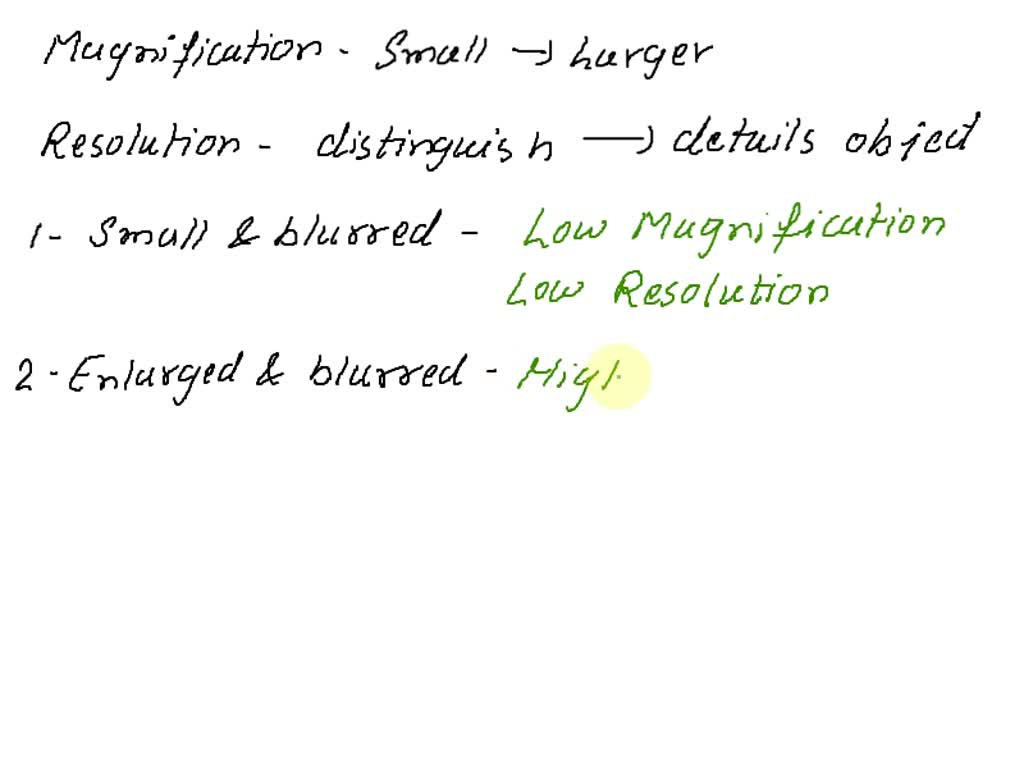 Magnification - Small → Larger
Resolution - distinguish → details object
1- Small & blurred - Low Magnification
Low Resolution
2 - Enlarged & blurred - High